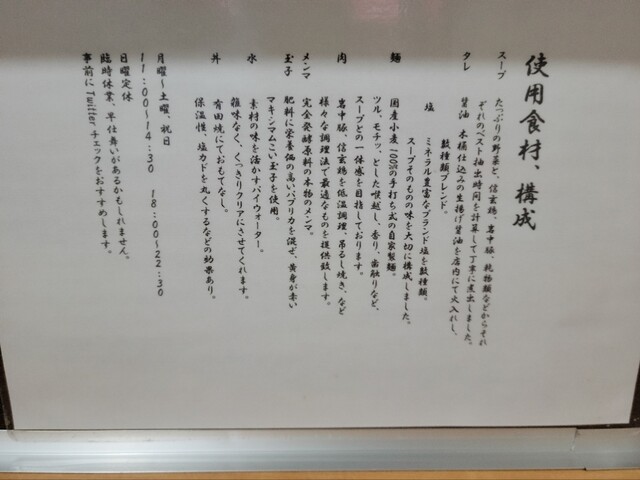 使用食材、構成
スープ　たっぷりの野菜と、信玄鶏、岩中豚、乾物類などからそれ
ぞれのベスト抽出時間を計算して丁寧に煮出しました。
タレ　醤油　木桶仕込みの生揚げ醤油を店内にて火入れし、
数種類ブレンド。
塩　ミネラル豊富なブランド塩を数種類。
スープそのものの味を大切に構成しました。
麺　国産小麦100%の手打ち式の自家製麺。
ツル、モチッ、とした喉越し、香り、歯触りなど、
スープとの一体感を目指しております。
肉　岩中豚、信玄鶏を低温調理、吊るし焼き、など
様々な調理法で最適なものを提供致します。
メンマ　完全発酵原料の本物のメンマ。
玉子　肥料に栄養価の高いパプリカを混ぜ、黄身が赤い
マキシマムこい玉子を使用。
水　素材の味を活かすパイウォーター。
雑味なく、くっきりクリアにさせてくれます。
丼　有田焼にておもてなし。
保温性、塩カドを丸くするなどの効果あり。
月曜〜土曜、祝日
11:00〜14:30　18:00〜22:30
日曜定休
臨時休業、早仕舞いがあるかもしれません。
事前にTwitterチェックをおすすめします。